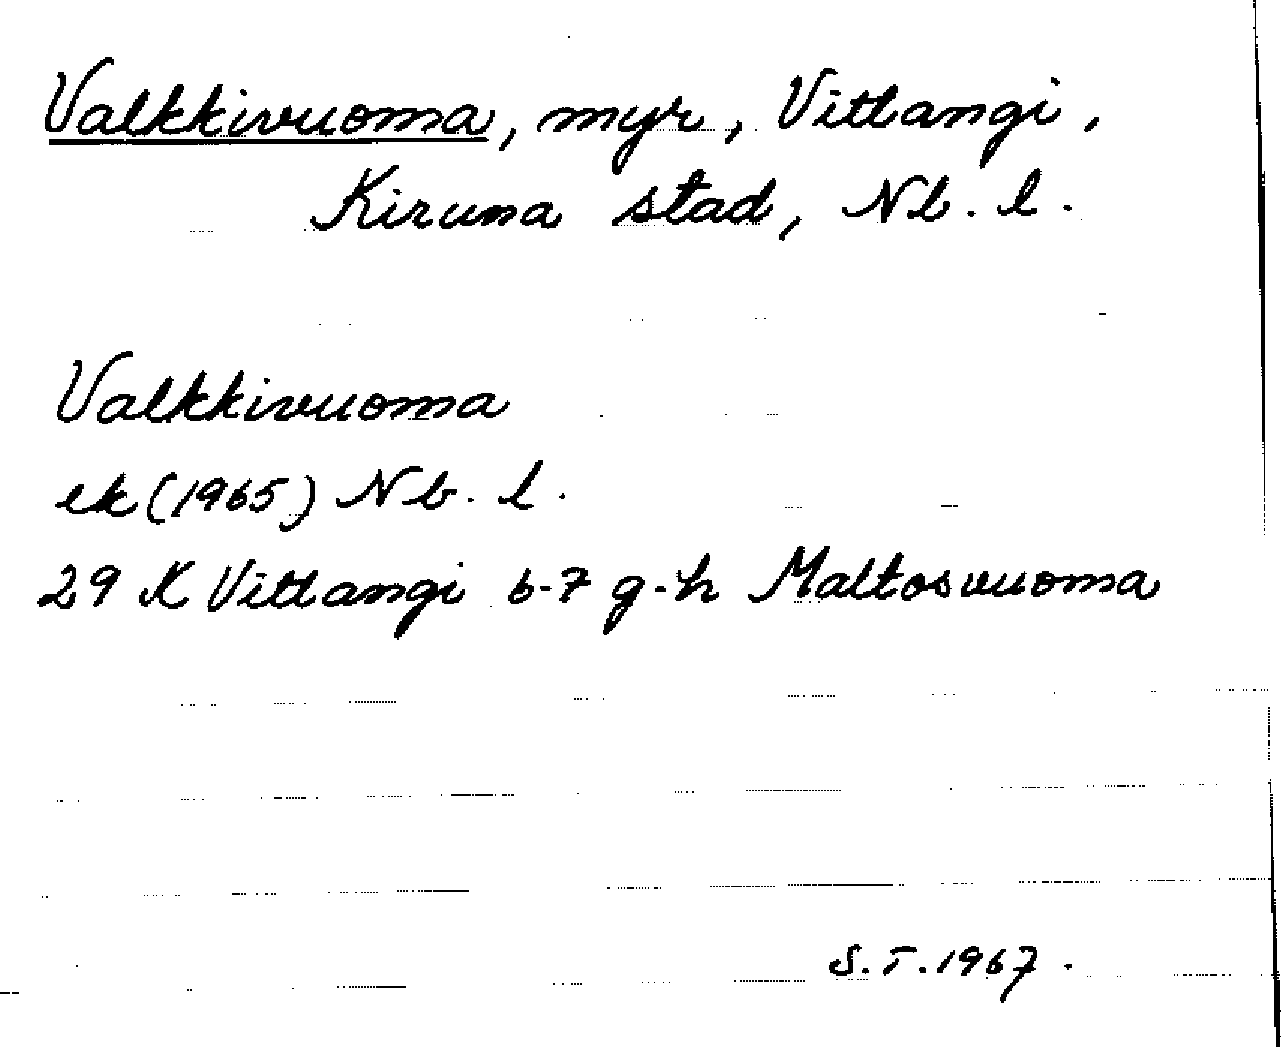 Valkkivuoma, myr, Vittangi,
Kiruna stad, Nb. l.
Valkkivuoma
ek (1965) Nb. l.
29 K Vittangi 6-7 g-h Maltosvuoma
S.T. 1967.